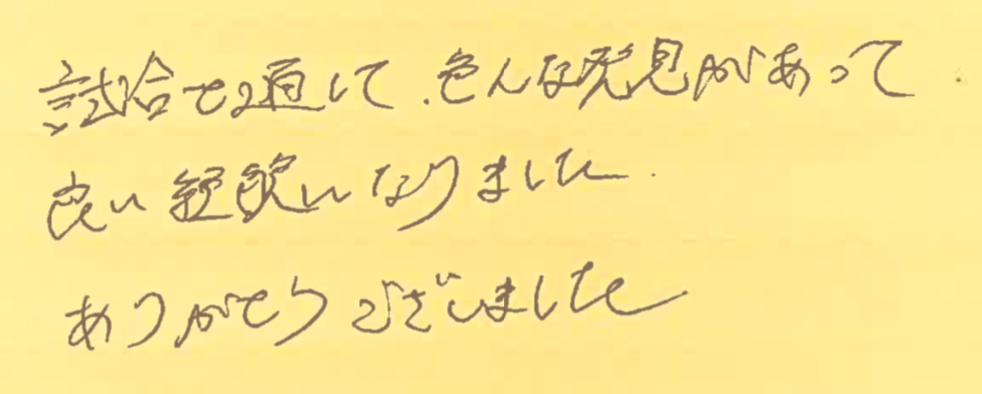 試合を通して、色んな発見があって
良い経験になりました.
ありがとうございました